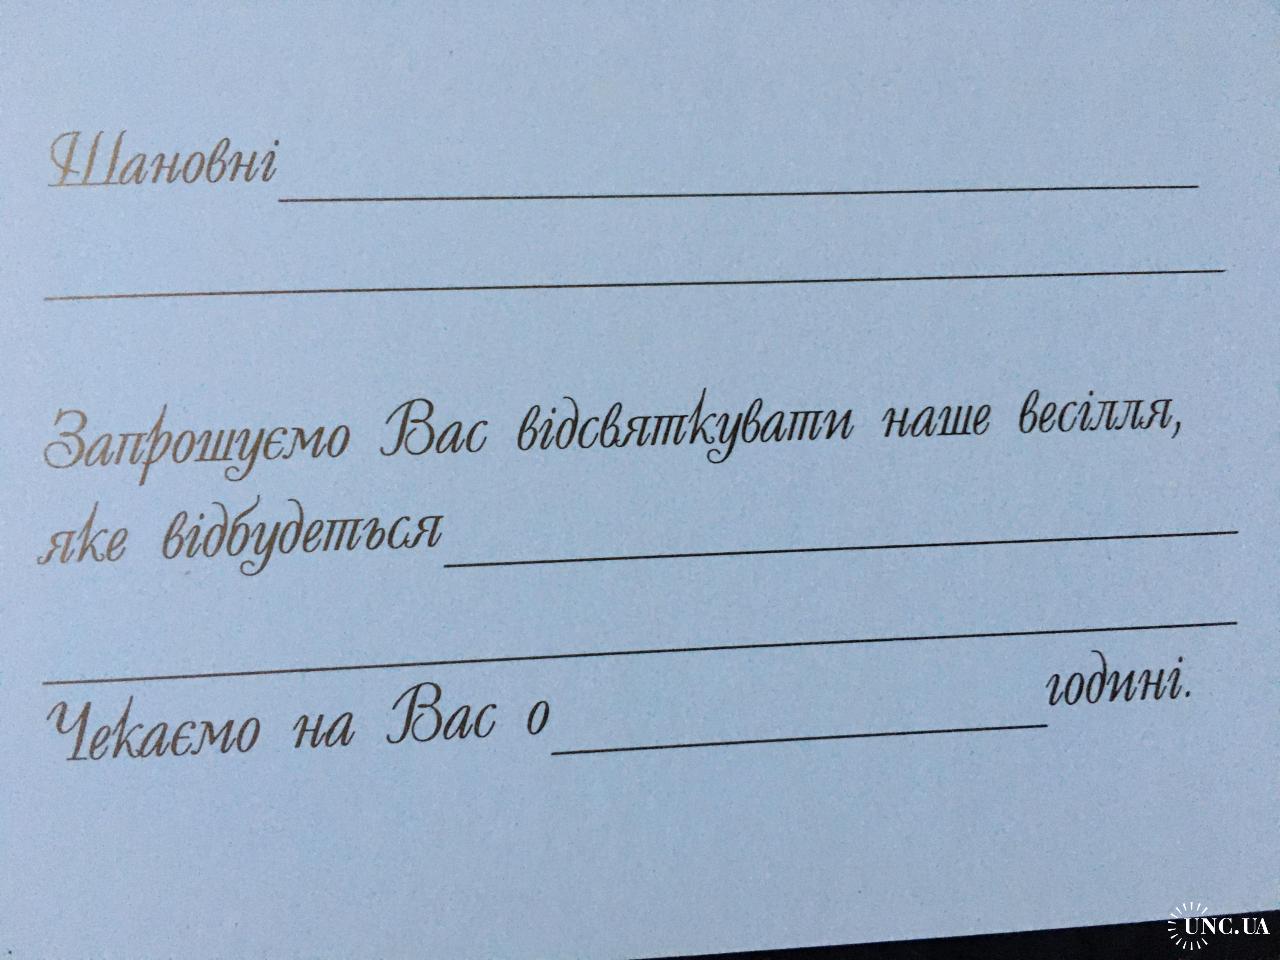 Шановні
Запрошуємо Вас відсвяткувати наше весілля,
яке відбудеться
Чекаємо на Вас о годині.
UNC.UA